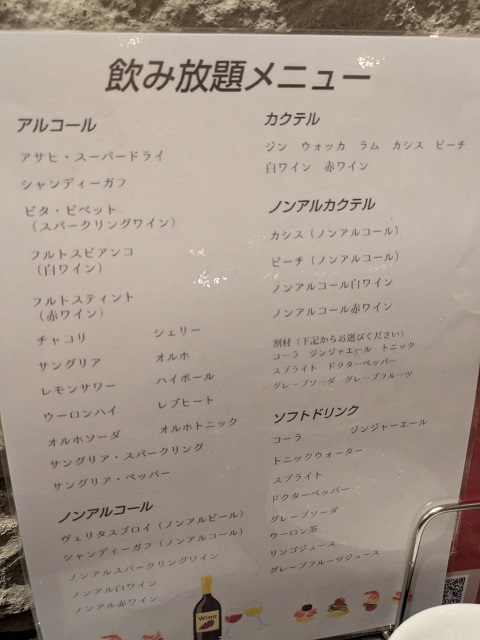 飲み放題メニュー
アルコール
アサヒ・スーパードライ
シャンディーガフ
ビタ・ビベット
（スパークリングワイン）
フルトスビアンコ
（白ワイン）
フルトスティント
（赤ワイン）
チャコリ シェリー
サングリア オルホ
レモンサワー ハイボール
ウーロンハイ レブヒート
オルホソーダ オルホトニック
サングリア・スパークリング
サングリア・ペッパー
ノンアルコール
ヴェリタスブロイ（ノンアルビール）
シャンディーガフ（ノンアルコール）
ノンアルスパークリングワイン
ノンアル白ワイン
ノンアル赤ワイン
カクテル
ジン ウォッカ ラム カシス ピーチ
白ワイン 赤ワイン
ノンアルカクテル
カシス（ノンアルコール）
ピーチ（ノンアルコール）
ノンアルコール白ワイン
ノンアルコール赤ワイン
割材（下記からお選びください）
コーラ ジンジャエール トニック
スプライト ドクターペッパー
グレープソーダ グレープフルーツ
ソフトドリンク
コーラ ジンジャーエール
トニックウォーター
スプライト
ドクターペッパー
グレープソーダ
ウーロン茶
リンゴジュース
グレープフルーツジュース
Wine